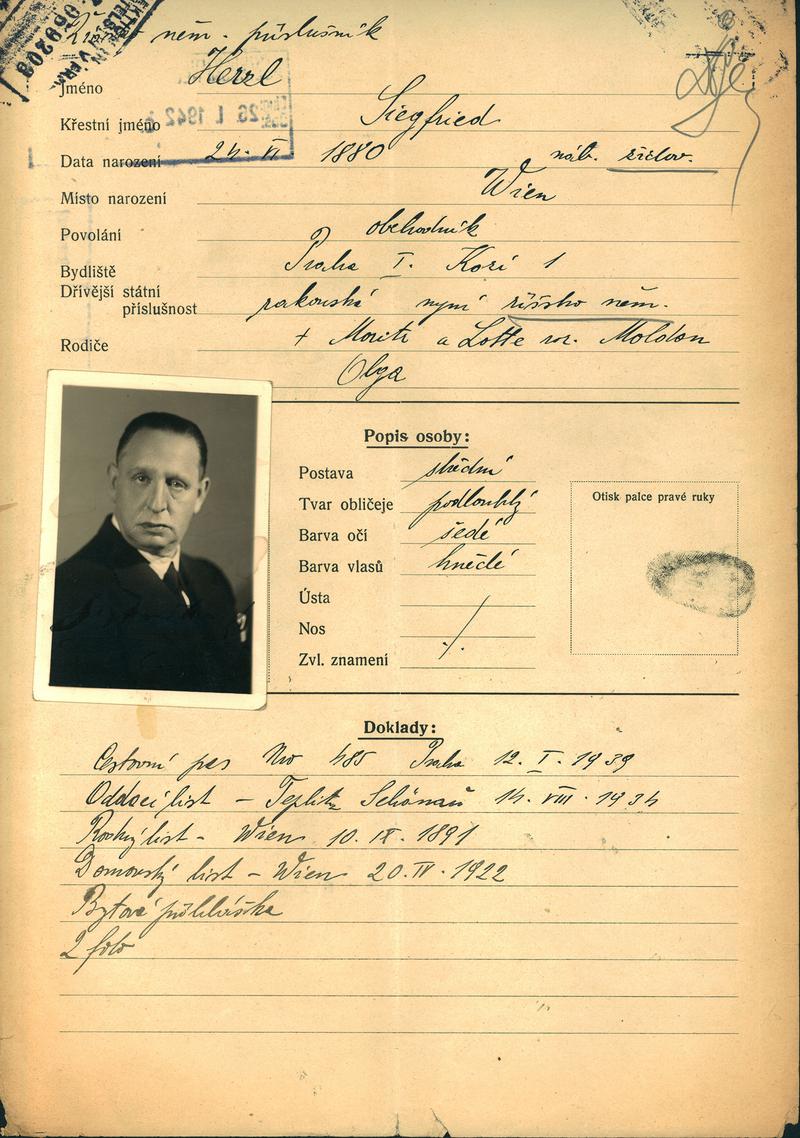 něm. příslušník
059203
26. I. 1942
Jméno Herzl
Křestní jméno Siegfried
Data narození 24. VI 1880 náb. židov.
Místo narození Wien
Povolání obchodník
Bydliště Praha I. Kozí 1
Dřívější státní
příslušnost rakouská nyní říšsko něm.
Rodiče + Moritz a Lotte roz. Moldon
Olga
Popis osoby:
Postava střední
Tvar obličeje podlouhlý
Barva očí šedé
Barva vlasů hnědé
Ústa
Nos ./.
Zvl. znamení
Otisk palce pravé ruky
Doklady:
Cestovní pas Nro 485 Praha 12. I. 1939
Oddací list - Teplitz Schönau 14. VIII. 1934
Rodný list - Wien 10. IX. 1891
Domovský list - Wien 20. IV. 1922
Bytová přihláška
2 foto